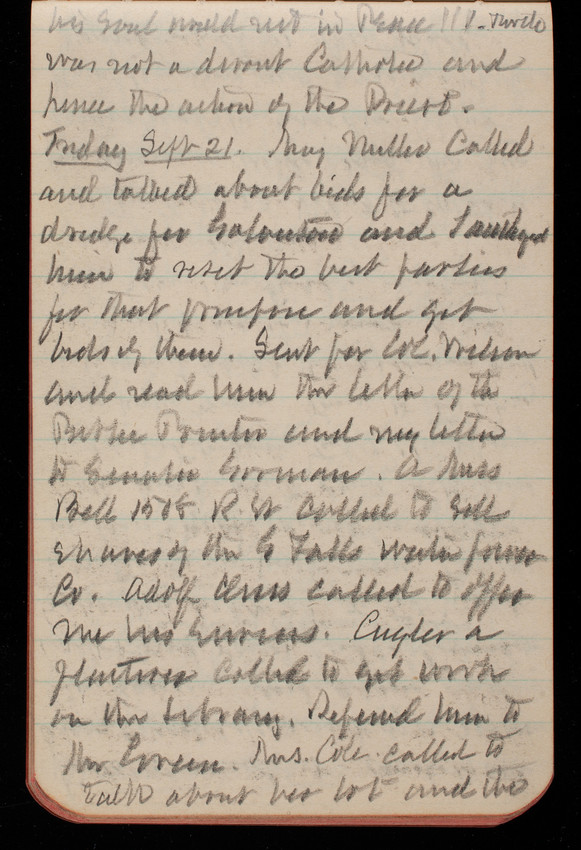 his soul would rest in Peace !!!
was not a devout Catholic and
hence the action of the Priest.
Friday Sept 21. Maj Miller Called
and talked about bids for a
dredge for Galveston and I
him to the best parties
for that purpose and get
bids of them. Sent for Col. Wilson
and read him the letter of the
Public Printer and my letter
to Senator Gorman. A Miss
Bell 1508 R. St called to sell
shares of the G Falls water power
Co. Adolf Cluss called to offer
me his services. a
called to get work
on the Library. Referred him to
Mr Green. Mrs. Cole called to
talk about her lot and the